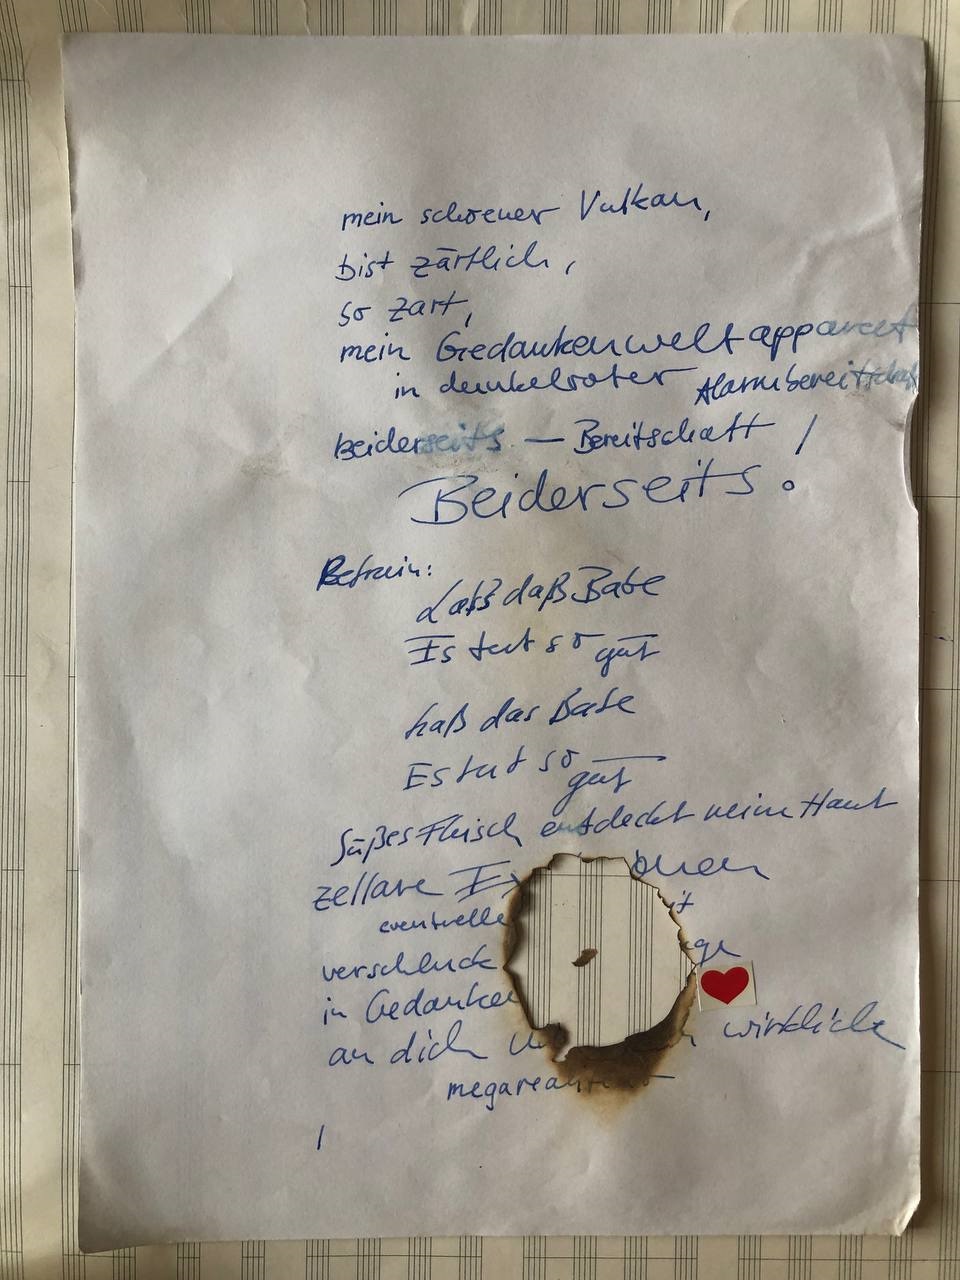 mein schoener Vulkan,
bist zärtlich,
so zart,
mein Gedankenweltapparat
in dunkelroter Alarmbereitschaft
beiderseits — Bereitschaft /
Beiderseits.
Refrain:
Laß daß Babe
Es tut so gut
Laß das Babe
Es tut so gut
Süßes Fleisch entdeckt meine Haut
zellare
in Gedanken
an dich wirklich